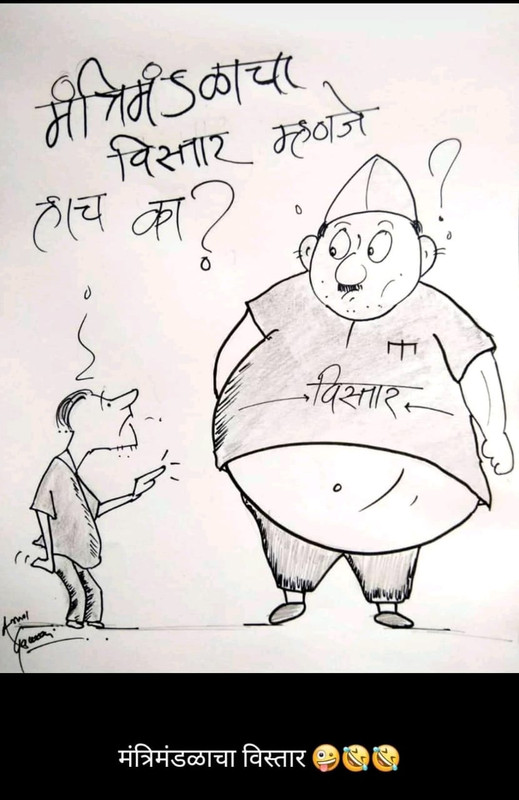 मंत्रिमंडळाचा
विस्तार म्हणजे
हाच का?
?
विस्तार
मंत्रिमंडळाचा विस्तार 🤪🤣🤣